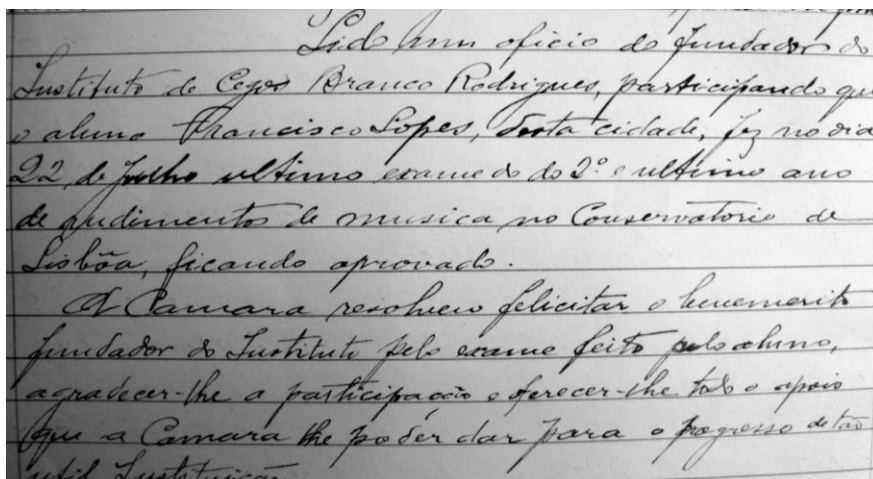 Lido um oficio do fundador do
Instituto de Cegos Branco Rodrigues, participando que
o aluno Francisco Lopes, desta cidade, fez no dia
22 de Julho ultimo exame do do 2.º e ultimo ano
de rudimentos de musica no Conservatorio de
Lisbôa, ficando aprovado.
A Camara resolveu felicitar o benemerito
fundador do Instituto pelo exame feito pelo aluno,
agradecer-lhe a participação e oferecer-lhe todo o apoio
que a Camara lhe podér dar para o progresso de tão
util Instituição